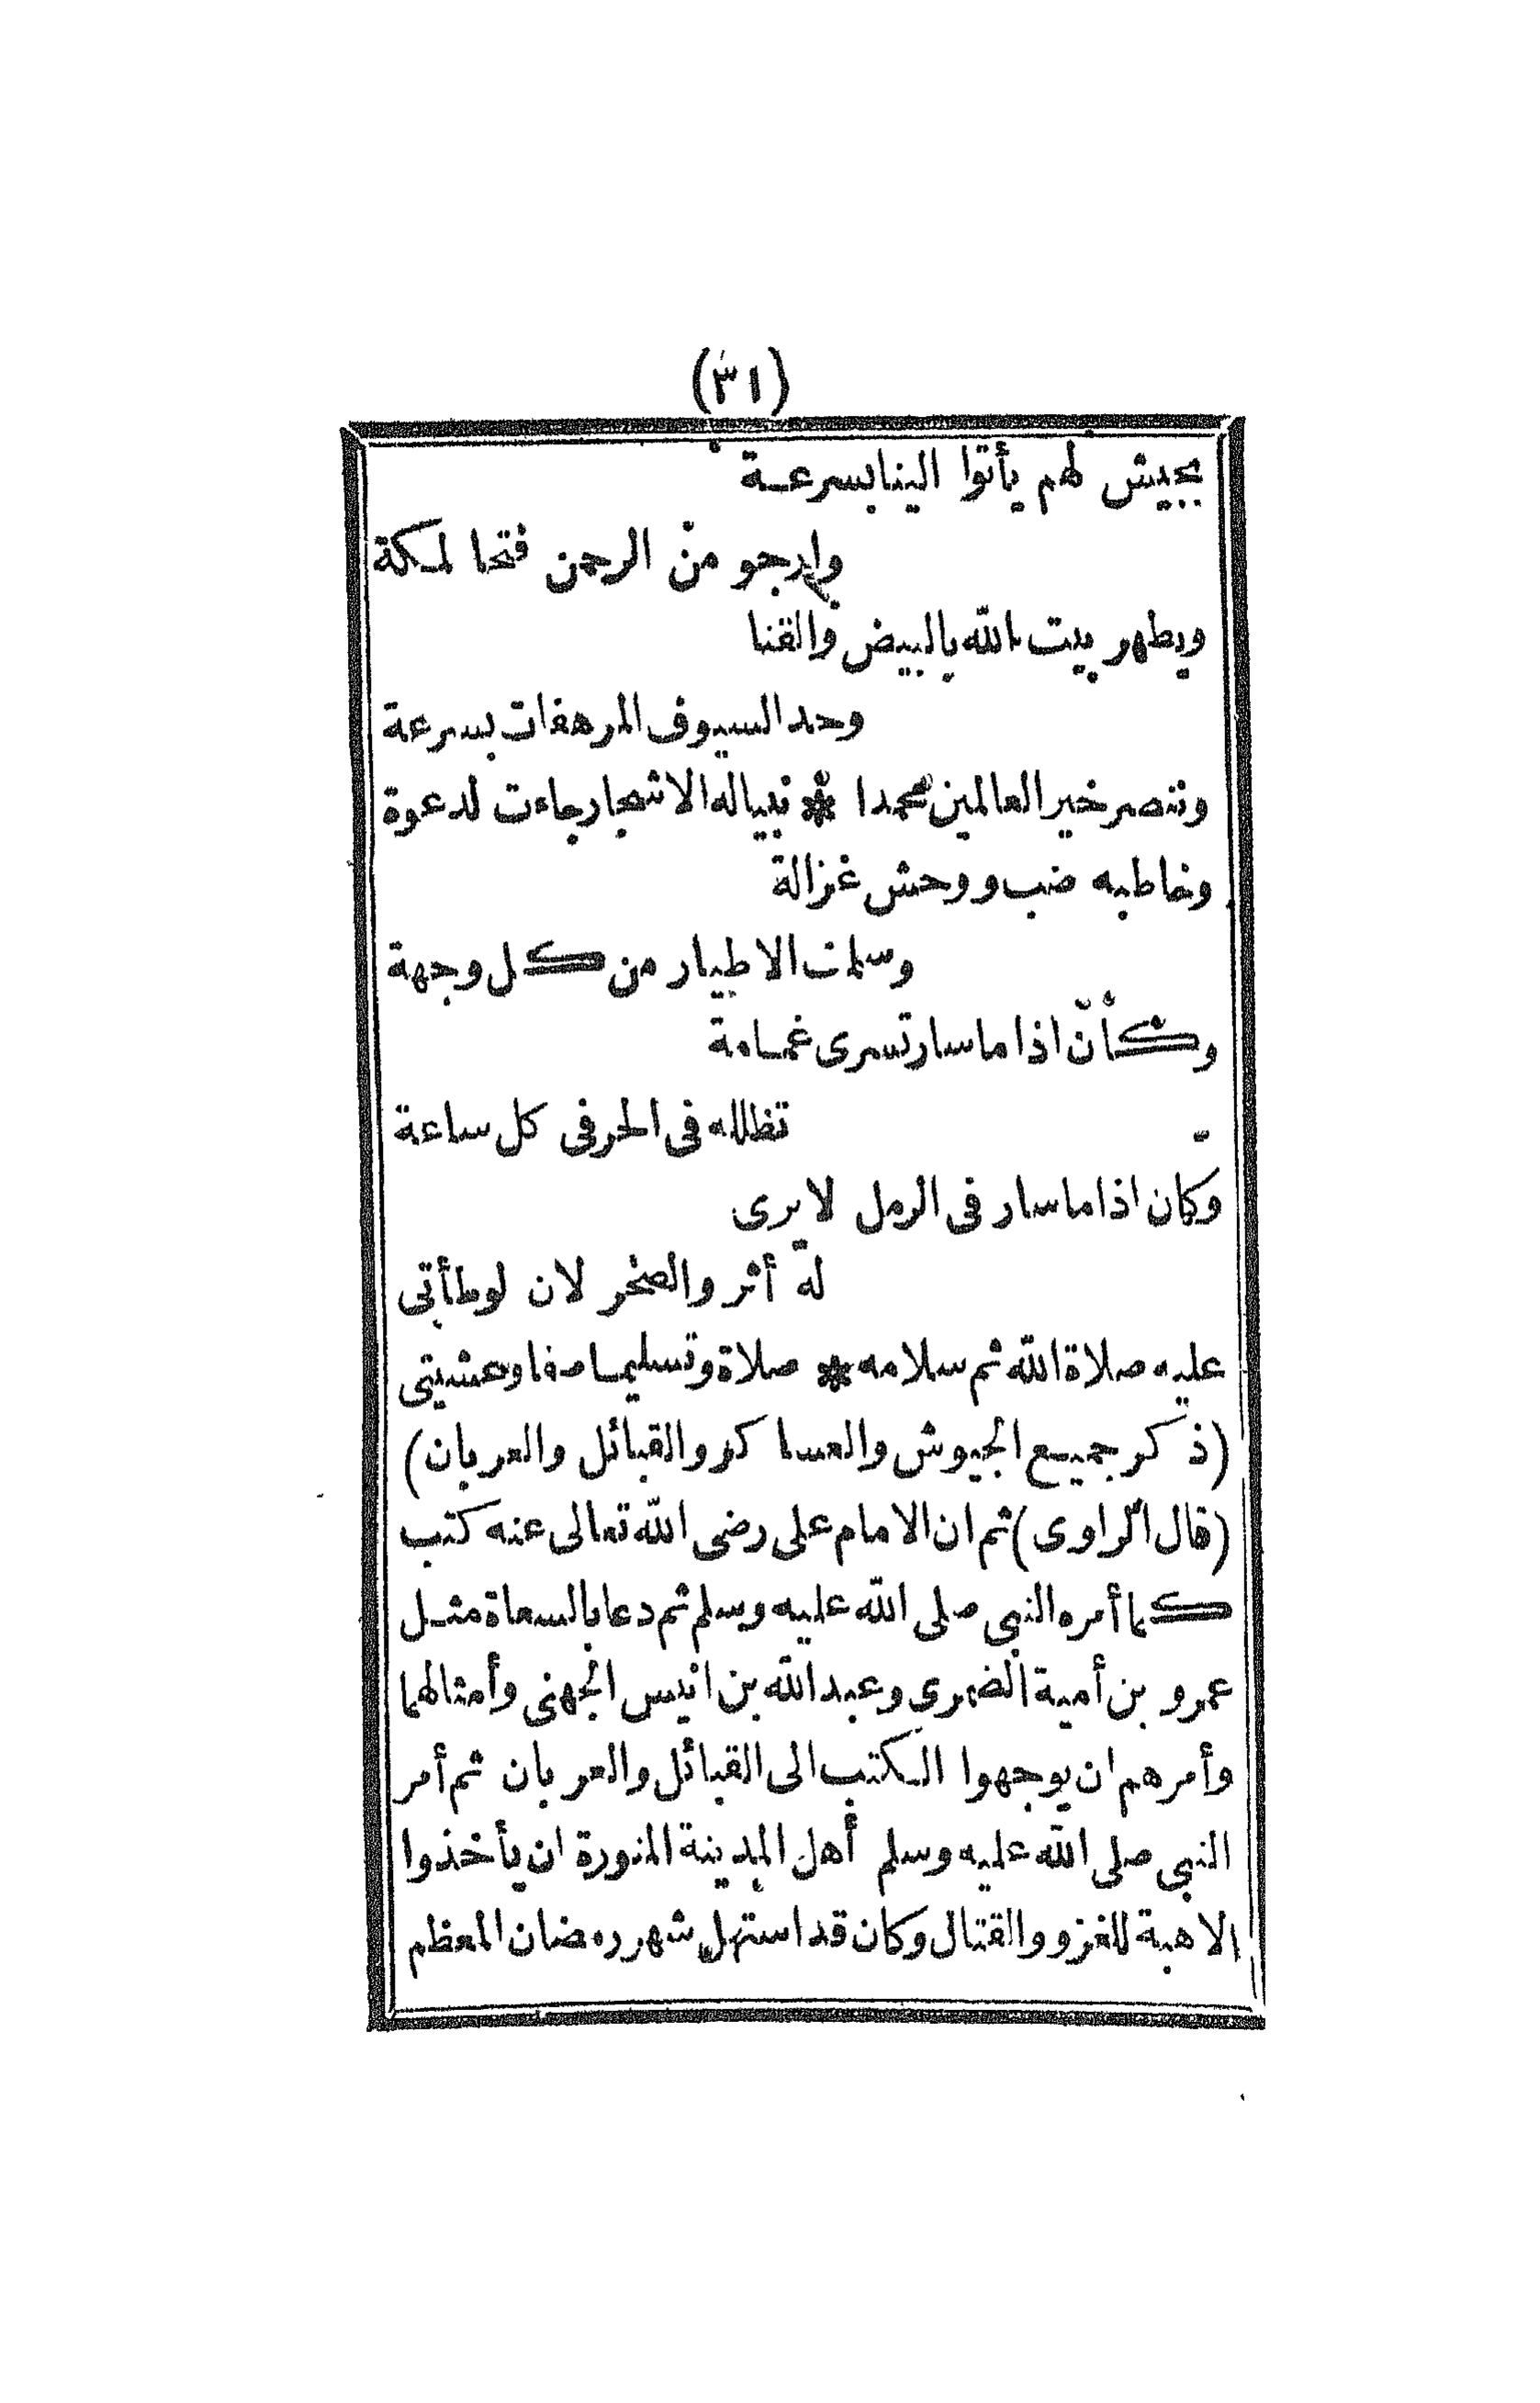 (٣١)
بجيش لهم يأتوا الينا بسرعة
وارجو من الرحمن فتحا لمكة
ويطهر بيت الله بالبيض والقنا
وحد السيوف المرهفات بسرعة
وننصر خير العالمين محمدا * نبيا له الاشجار جاءت لدعوة
وخاطبه ضب ووحش غزالة
وسلمت الاطيار من كل وجهة
وكأن اذا ما سار تسرى غمامة
تظلله فى الحر فى كل ساعة
وكان اذا ما سار فى الرمل لا يرى
له أثر والصخر لان لوطأتى
عليه صلاة الله ثم سلامه * صلاة وتسليما صفا وعشيتى
(ذكر جميع الجيوش والعساكر والقبائل والعربان)
(قال الراوى) ثم ان الامام على رضى الله تعالى عنه كتب
كما أمره النبى صلى الله عليه وسلم ثم دعا بالسعاة مثل
عمرو بن أمية الضمرى وعبد الله بن انيس الجهنى وأمثالهما
وأمرهم ان يوجهوا الكتب الى القبائل والعربان ثم أمر
النبى صلى الله عليه وسلم أهل المدينة المنورة ان يأخذوا
الاهبة للغزو والقتال وكان قد استهل شهر رمضان المعظم